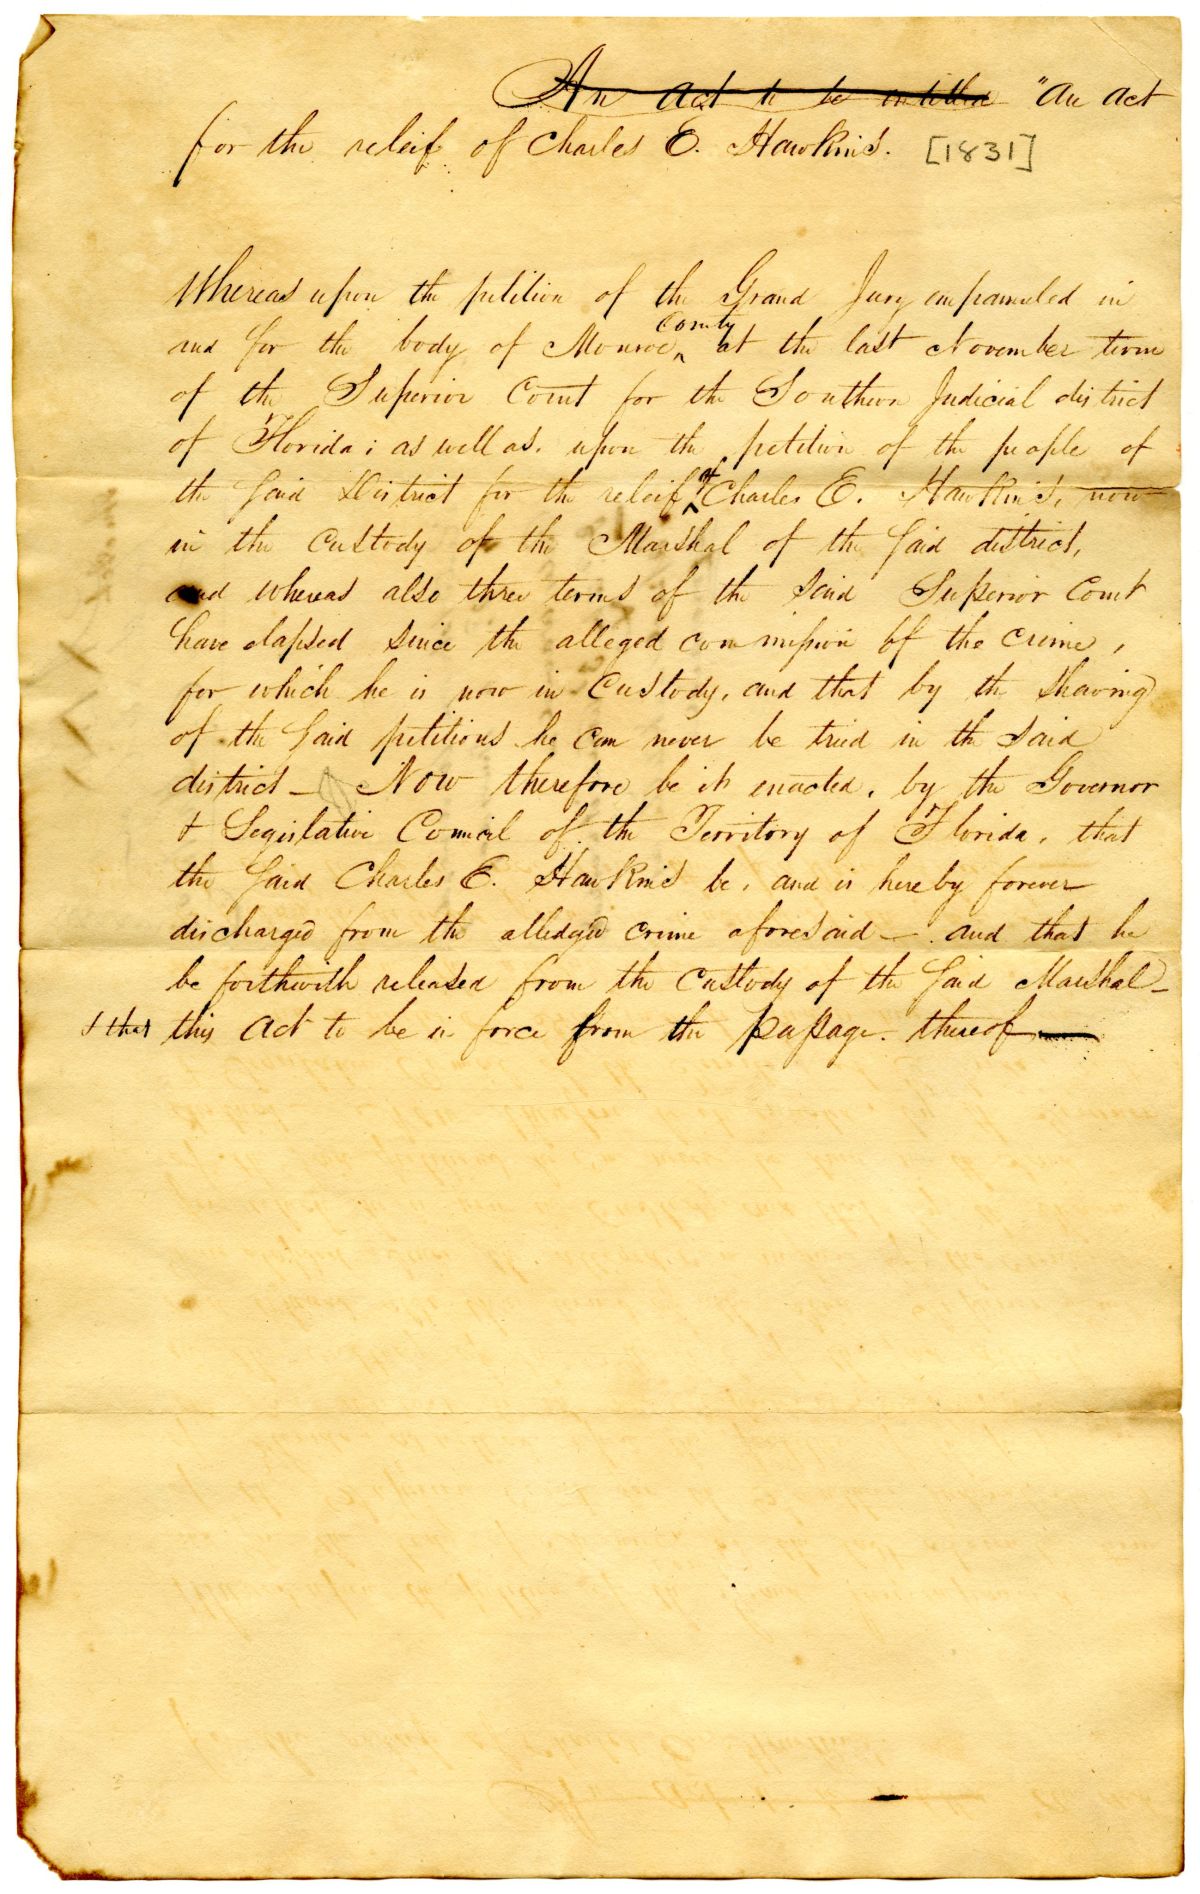 An act to be entitled "An act
for the releif of Charles E. Hawkins. [1831]
Whereas upon the petition of the Grand Jury empanneled in
and for the body of Monroe County at the last November term
of the Superior Court for the Southern Judicial district
of Florida; as well as. upon the petition of the people of
the said District for the releif of Charles E. Hawkins, now
in the custody of the Marshal of the said district,
and whereas also three terms of the said Superior Court
have elapsed since the alleged commission of the crime,
for which he is now in custody, and that by the shewing
of the said petitions he can never be tried in the said
district — Now therefore be it enacted, by the Governor
& Legislative Council of the Territory of Florida, that
the said Charles E. Hawkins be, and is hereby forever
discharged from the alledged crime aforesaid — and that he
be forthwith released from the custody of the said Marshal —
& that this act to be in force from the passage thereof —